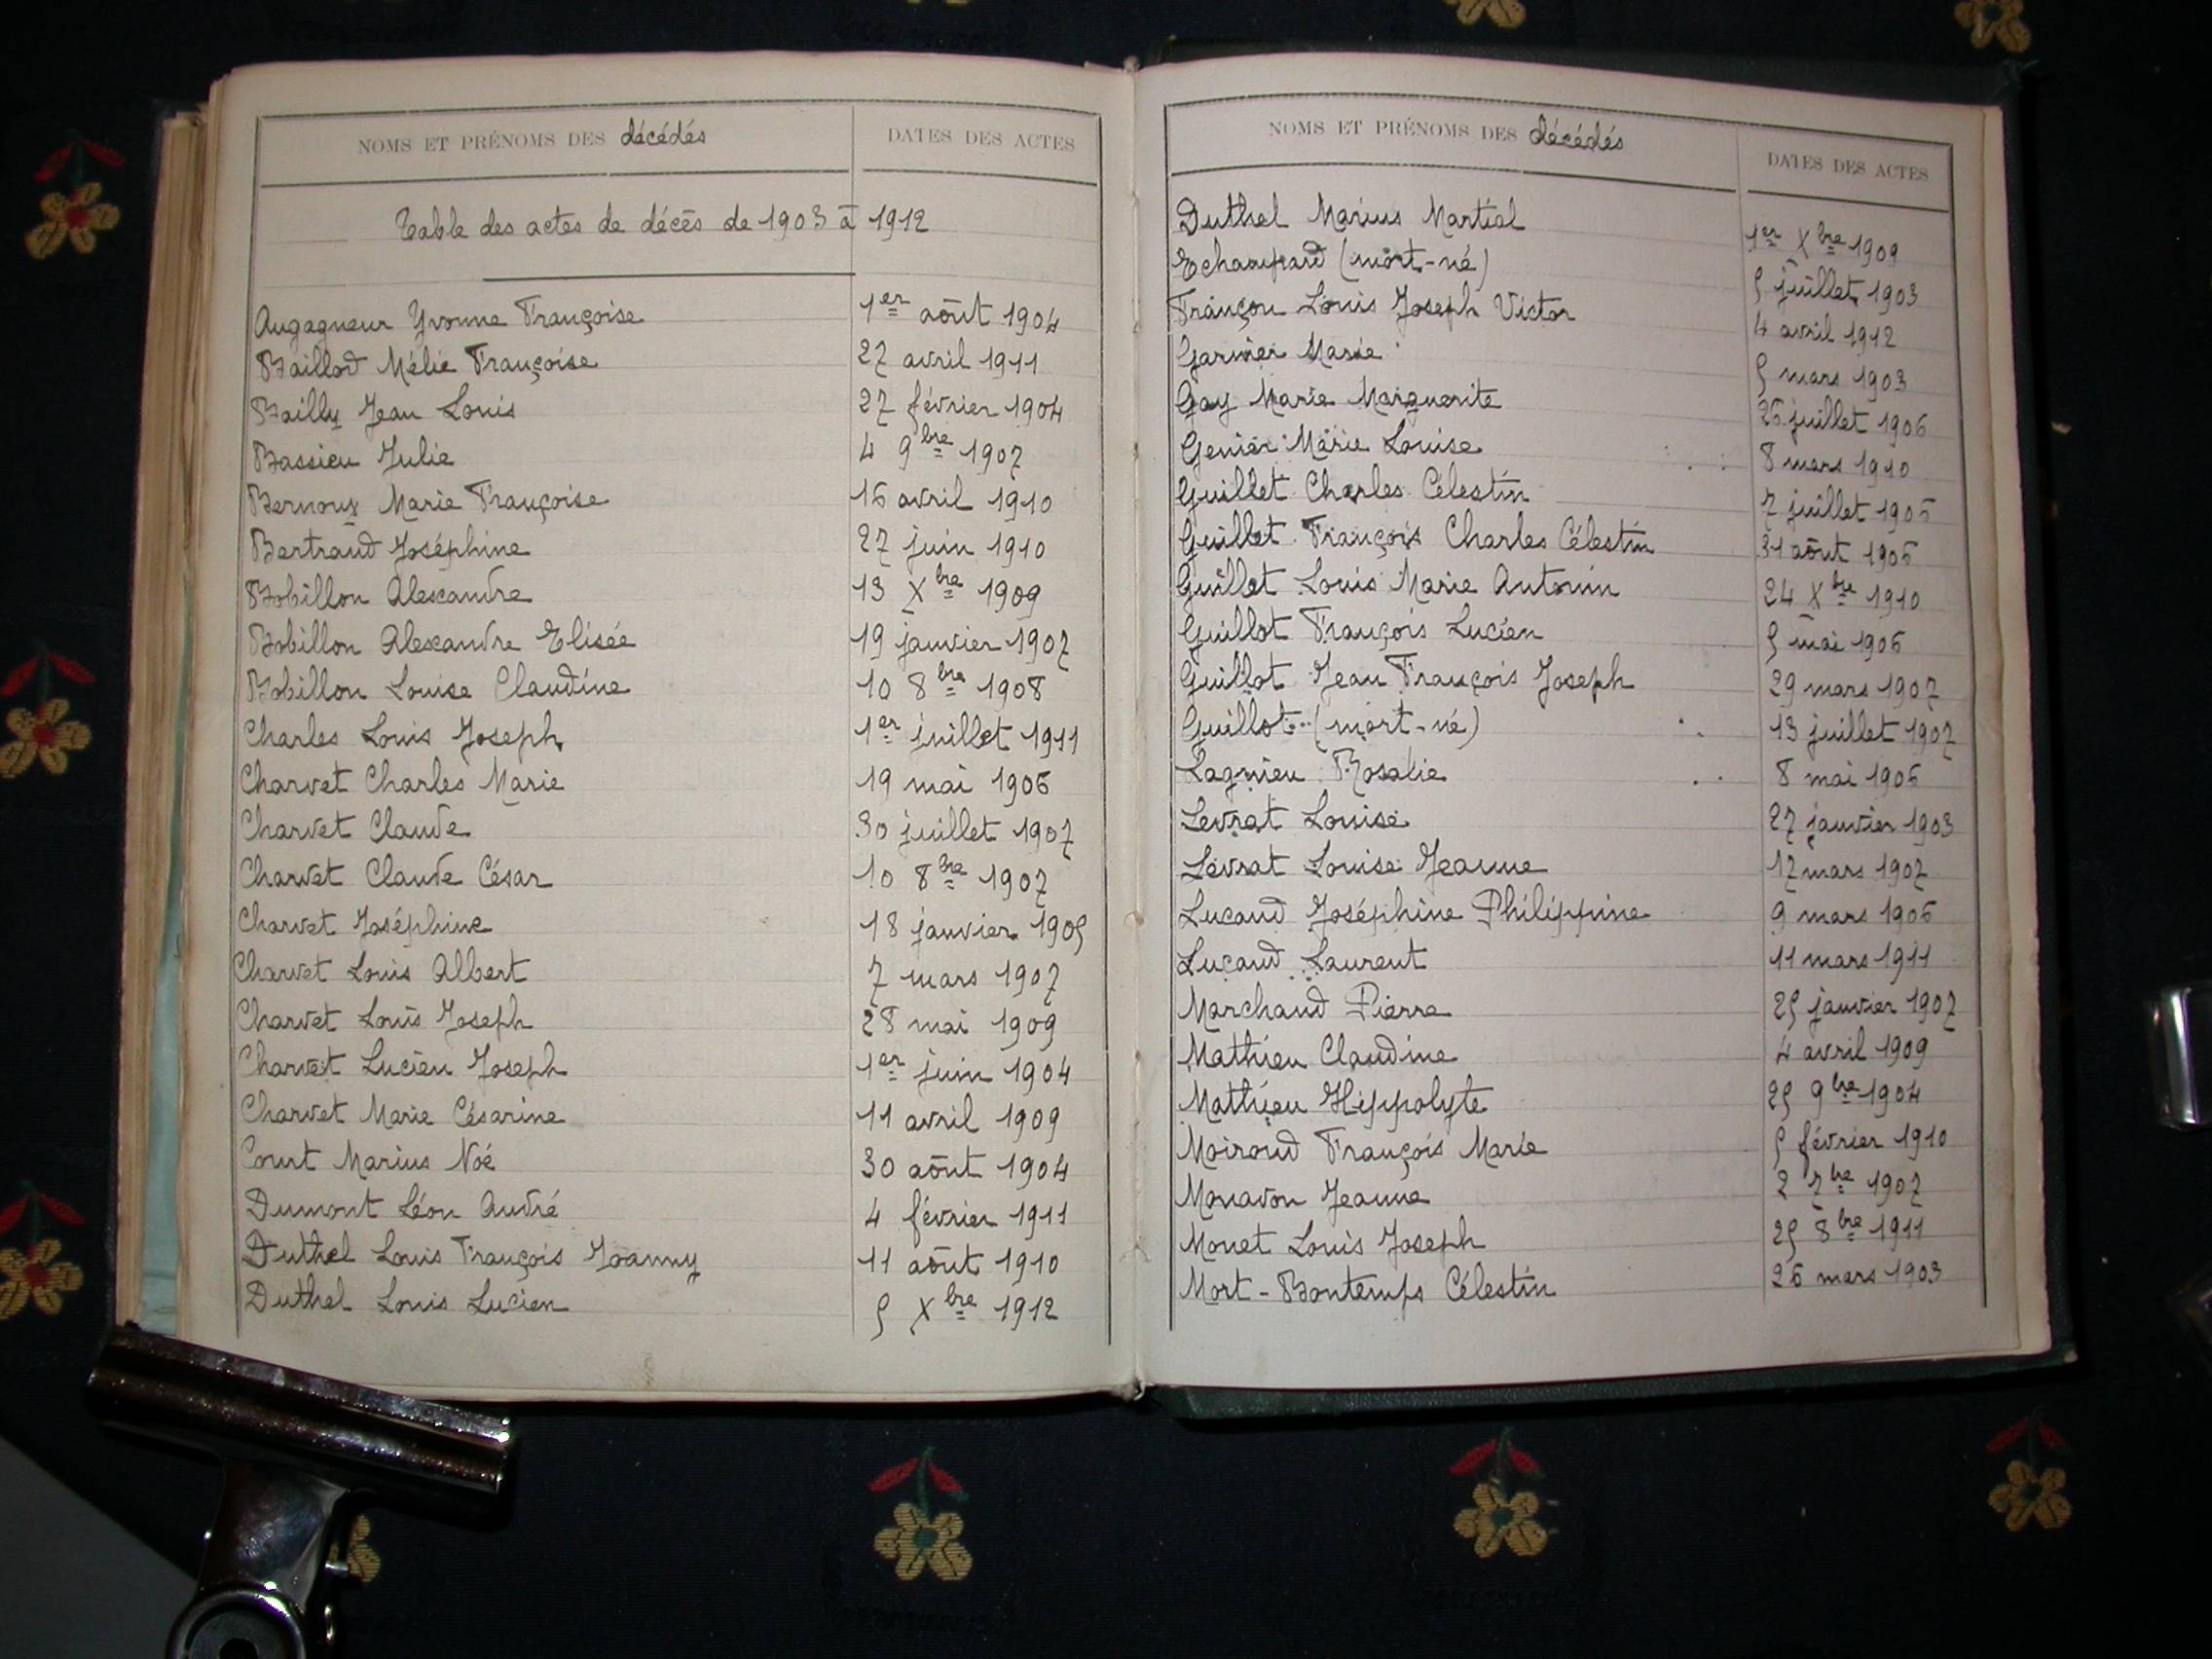 NOMS ET PRÉNOMS DES décédés DATES DES ACTES
Table des actes de décès de 1903 à 1912
Augagneur Yvonne Françoise 1er août 1904
Baillod Mélie Françoise 27 avril 1911
Bailly Jean Louis 27 février 1904
Bassieu Julie 4 9bre 1907
Bernoux Marie Françoise 16 avril 1910
Bertrand Joséphine 27 juin 1910
Bobillon Alexandre 13 Xbre 1909
Bobillon Alexandre Elisée 19 janvier 1907
Bobillon Louise Claudine 10 8bre 1908
Charles Louis Joseph 1er juillet 1911
Charvet Charles Marie 19 mai 1906
Charvet Claude 30 juillet 1907
Charvet Claude César 10 8bre 1907
Charvet Joséphine 18 janvier 1905
Charvet Louis Albert 7 mars 1907
Charvet Louis Joseph 28 mai 1909
Charvet Lucien Joseph 1er juin 1904
Charvet Marie Césarine 11 avril 1909
Court Marius Noé 30 août 1904
Dumont Léon André 4 février 1911
Duthel Louis François Joanny 11 août 1910
Duthel Louis Lucien 5 Xbre 1912
NOMS ET PRÉNOMS DES décédés DATES DES ACTES
Duthel Marius Martial 1er Xbre 1909
Echampard (mort-né) 5 juillet 1903
Françon Louis Joseph Victor 4 avril 1912
Garnier Marie 5 mars 1903
Gay Marie Marguerite 26 juillet 1906
Genier Marie Louise 8 mars 1910
Guillet Charles Célestin 7 juillet 1906
Guillet François Charles Célestin 31 août 1906
Guillet Louis Marie Antonin 24 Xbre 1910
Guillot François Lucien 5 mai 1906
Guillot Jean François Joseph 29 mars 1907
Guillot (mort-né) 13 juillet 1907
Lagnieu Rosalie 8 mai 1906
Levrat Louise 27 janvier 1903
Levrat Louise Jeanne 17 mars 1907
Lucand Joséphine Philippine 9 mars 1906
Lucand Laurent 11 mars 1911
Marchand Pierre 25 janvier 1907
Mathieu Claudine 4 avril 1909
Mathieu Hippolyte 25 9bre 1904
Moiroud François Marie 5 février 1910
Monavon Jeanne 2 7bre 1907
Monet Louis Joseph 25 8bre 1911
Mort-Bontemps Célestin 26 mars 1903